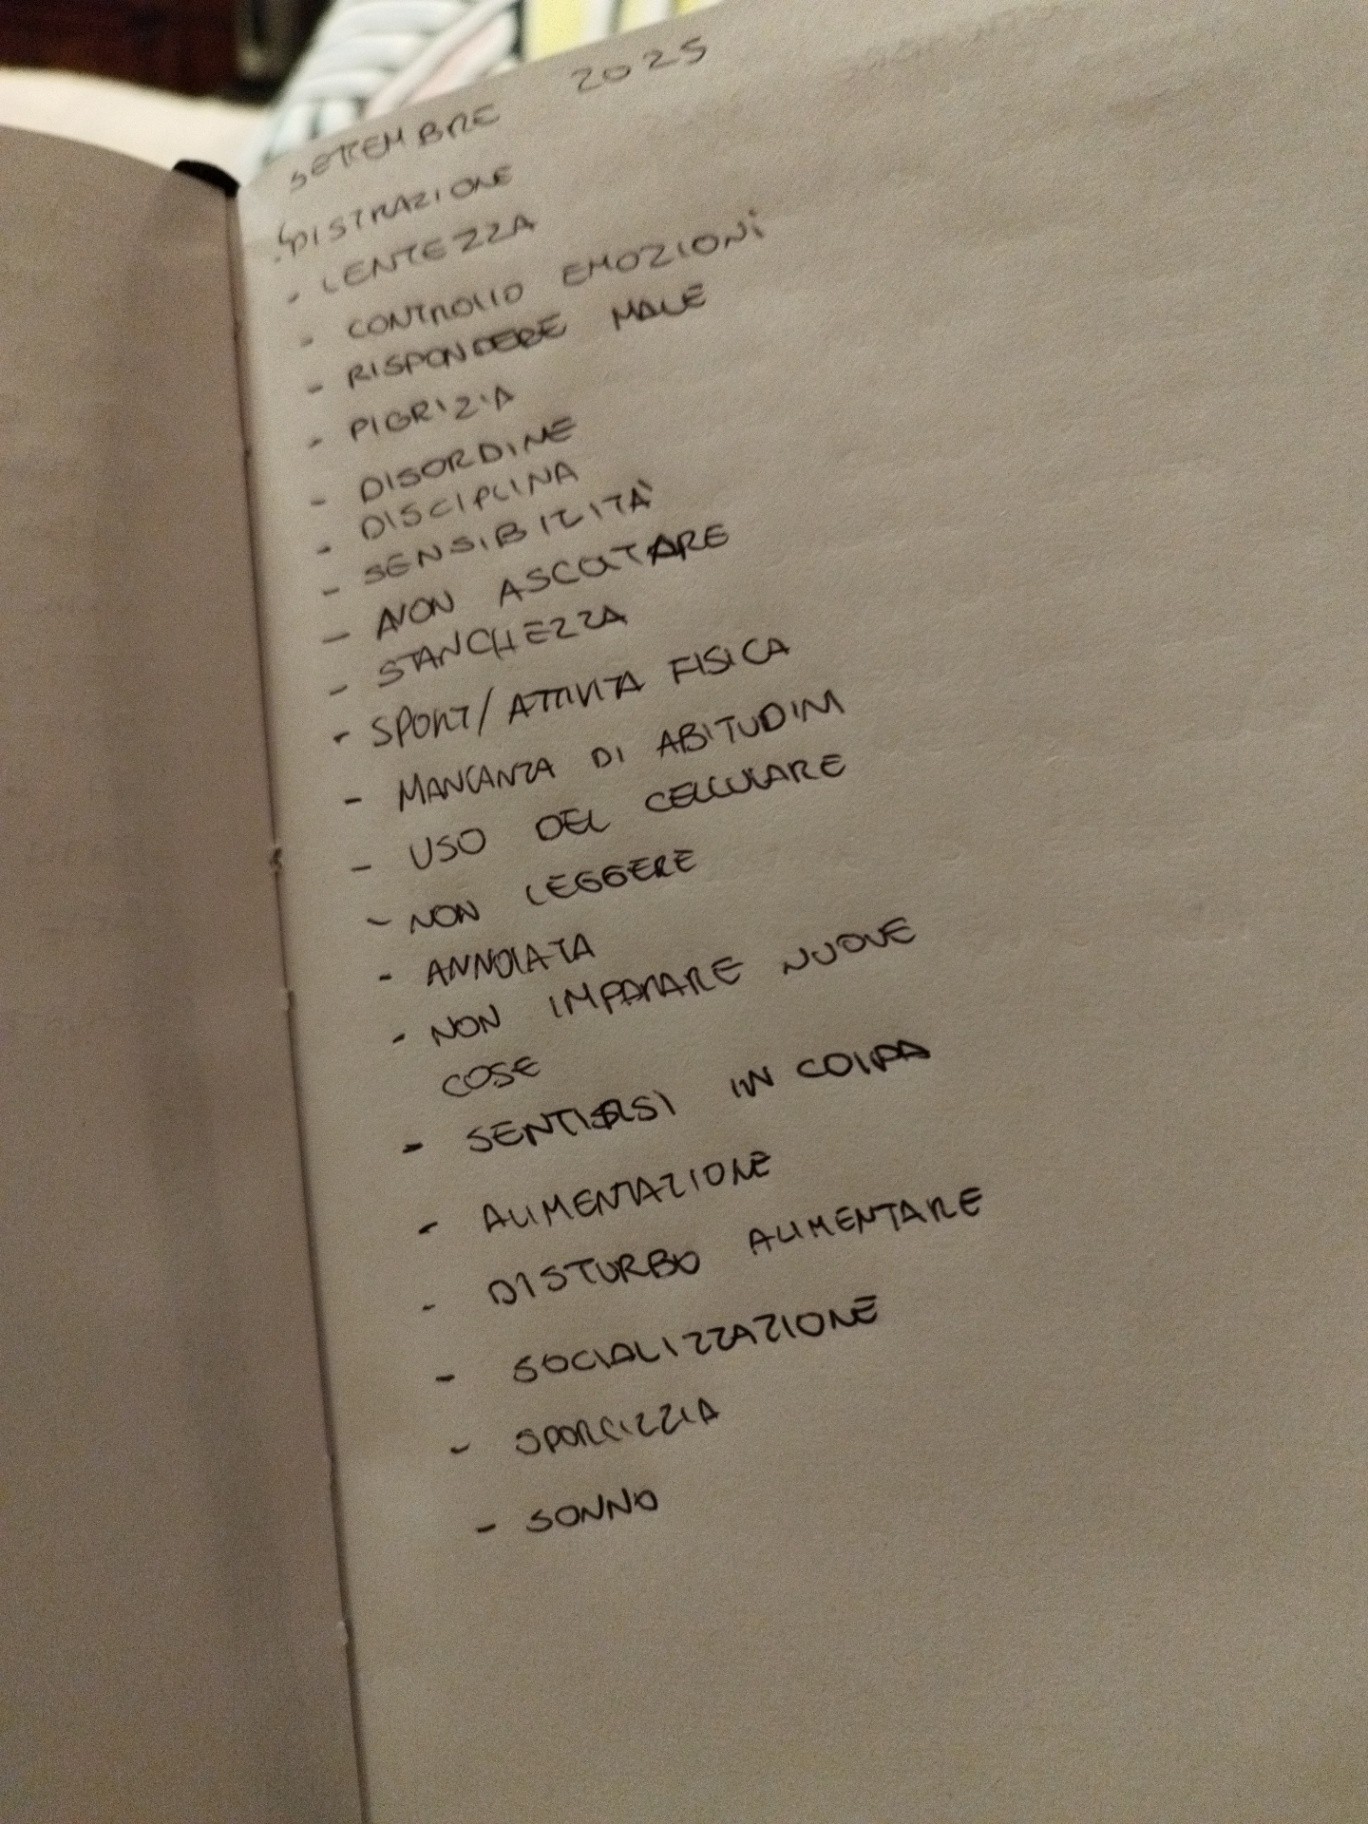 SETTEMBRE 2025
- DISTRAZIONE
- LENTEZZA
- CONTROLLO EMOZIONI
- RISPONDERE MALE
- PIGRIZIA
- DISORDINE
- DISCIPLINA
- SENSIBILITÀ
- NON ASCOLTARE
- STANCHEZZA
- SPORT/ATTIVITA FISICA
- MANCANZA DI ABITUDINI
- USO DEL CELLULARE
- NON LEGGERE
- ANNOIATA
- NON IMPARARE NUOVE
COSE
- SENTIRSI IN COLPA
- ALIMENTAZIONE
- DISTURBO ALIMENTARE
- SOCIALIZZAZIONE
- SPORCIZZIA
- SONNO